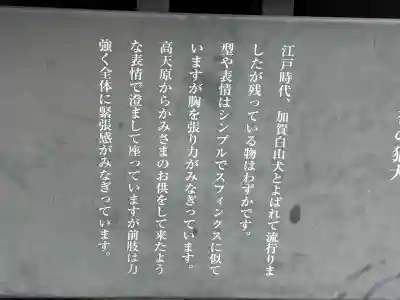 の狛犬
江戸時代、加賀白山犬とよばれて流行りま
したが残っている物はわずかです。
型や表情はシンプルでスフィンクスに似て
いますが胸を張り力がみなぎっています。
高天原からかみさまのお供をして来たよう
な表情で澄まして座っていますが前肢は力
強く全体に緊張感がみなぎっています。